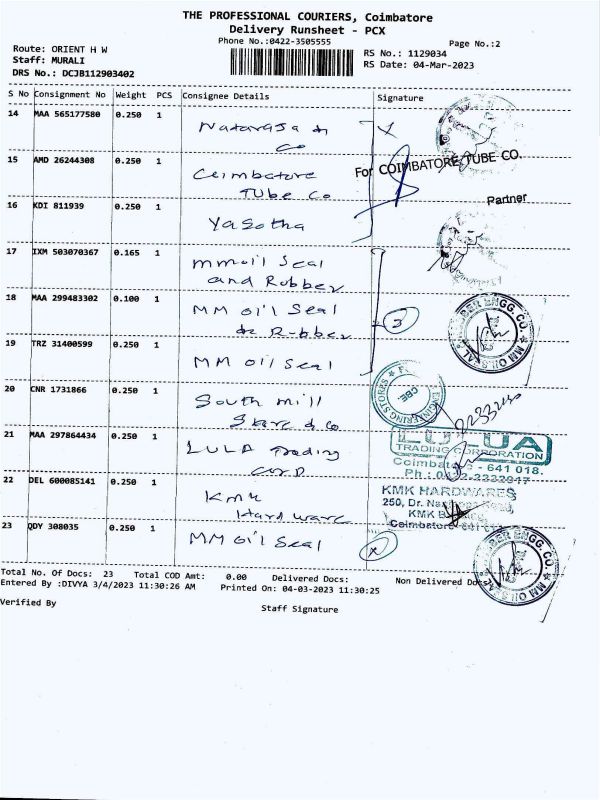 THE PROFESSIONAL COURIERS, Coimbatore
Delivery Runsheet - PCX
Phone No.:0422-3505555
Page No.:2
Route: ORIENT H W
Staff: MURALI
DRS No.: DCJB112903402
RS No.: 1129034
RS Date: 04-Mar-2023
S No Consignment No Weight PCS Consignee Details Signature
14 MAA 565177580 0.250 1 Nataraja & Co
15 AMD 26244308 0.250 1 Coimbatore Tube Co
For COIMBATORE TUBE CO.
Partner
16 KDI 811939 0.250 1 Yasotha
17 IXM 503070367 0.165 1 mmoil Seal and Rubber
18 MAA 299483302 0.100 1 MM oil Seal & Rubber
3
19 TRZ 31400599 0.250 1 MM oil Seal
20 CNR 1731866 0.250 1 South mill Store & Co
21 MAA 297864434 0.250 1 LULA Trading Corp
TRADING CORPORATION
Coimbatore - 641 018.
22 DEL 600085141 0.250 1 KMK Hardware
KMK HARDWARES
250, Dr.
KMK
Coimbatore
23 QDY 308035 0.250 1 MM oil Seal
RUBBER ENGG. CO. MM OIL SEAL
Total No. Of Docs: 23 Total COD Amt: 0.00 Delivered Docs: Non Delivered Docs:
Entered By :DIVYA 3/4/2023 11:30:26 AM Printed On: 04-03-2023 11:30:25
Verified By
Staff Signature